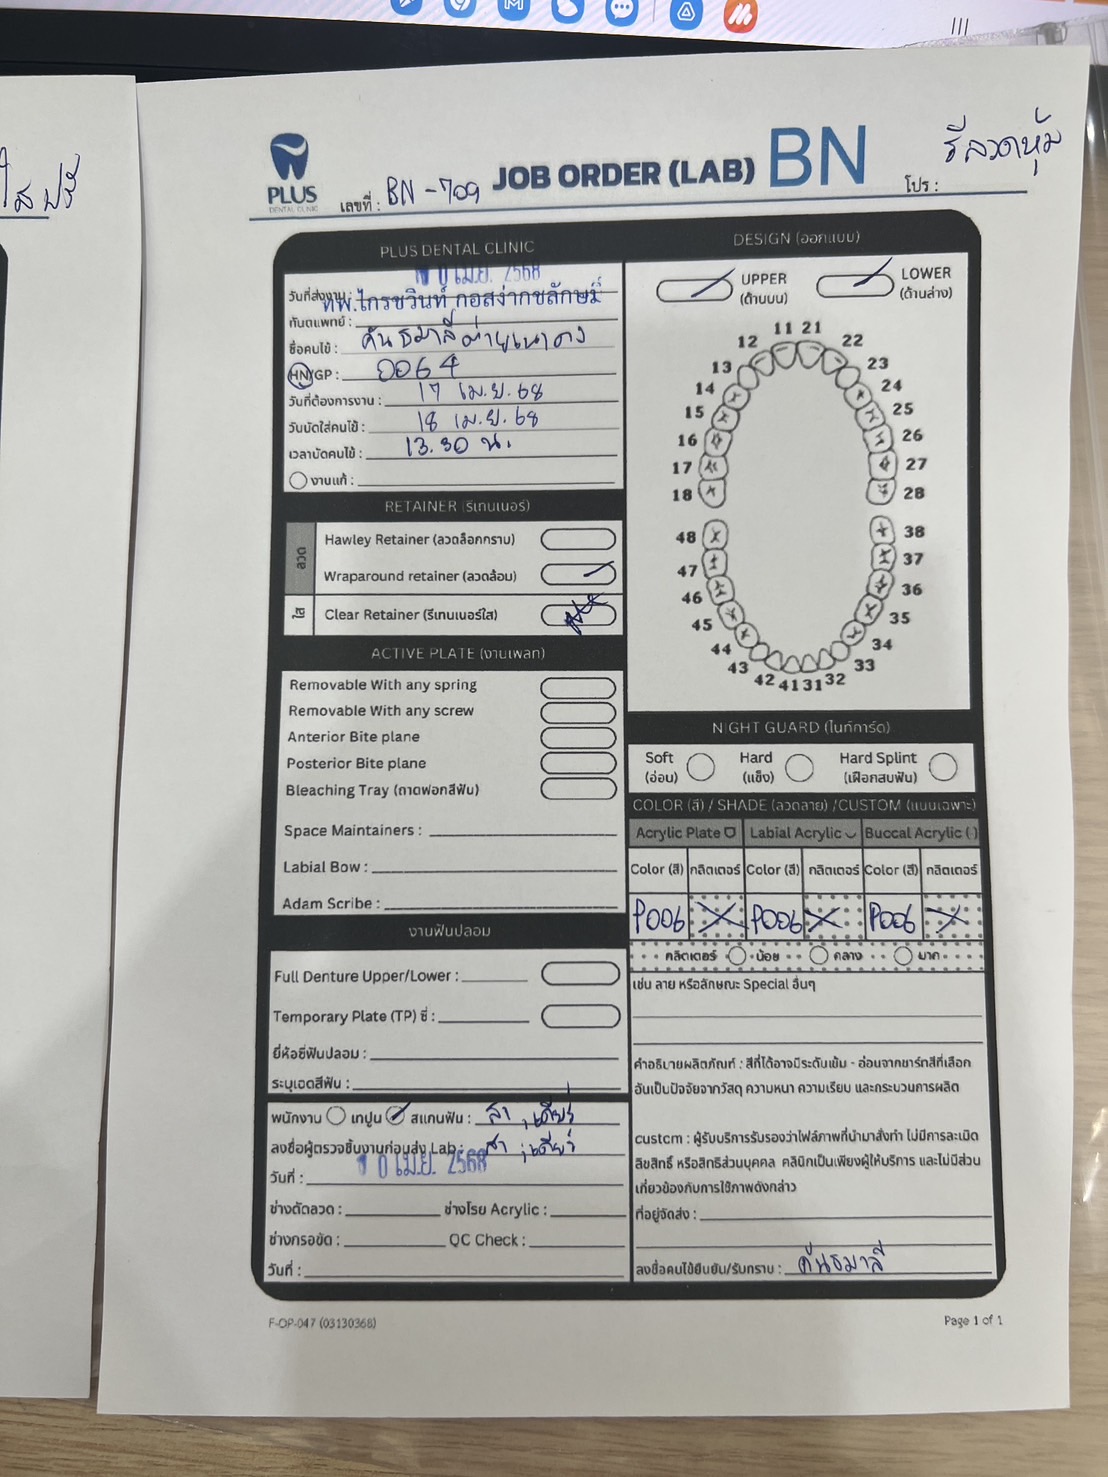 ใสฟรี
PLUS
DENTAL CLINIC
เลขที่ : BN - 709
JOB ORDER (LAB) BN
โปร : รีลวดหุ้ม
PLUS DENTAL CLINIC
วันที่ส่งงาน : 1 0 เม.ย. 2568
ทันตแพทย์ : ทพ.ไกรชวินท์ กอสง่าภชลักษณ์
ชื่อคนไข้ : คันธมาลี
HN/GP : 0064
วันที่ต้องการงาน : 17 เม.ย. 68
วันนัดใส่คนไข้ : 18 เม.ย. 68
เวลานัดคนไข้ : 13.30 น.
งานแก้ :
RETAINER (รีเทนเนอร์)
ลวด
Hawley Retainer (ลวดล็อกกราม)
Wraparound retainer (ลวดล้อม)
ใส
Clear Retainer (รีเทนเนอร์ใส)
ACTIVE PLATE (งานเพลท)
Removable With any spring
Removable With any screw
Anterior Bite plane
Posterior Bite plane
Bleaching Tray (ถาดฟอกสีฟัน)
Space Maintainers :
Labial Bow :
Adam Scribe :
งานฟันปลอม
Full Denture Upper/Lower :
Temporary Plate (TP) ซี่ :
ยี่ห้อซี่ฟันปลอม :
ระบุเฉดสีฟัน :
พนักงาน เทปูน สแกนฟัน : ลา , เดียร์
ลงชื่อผู้ตรวจชิ้นงานก่อนส่ง Lab : ลา , เดียร์
วันที่ : 1 0 เม.ย. 2568
ช่างดัดลวด : ช่างโรย Acrylic :
ช่างกรอขัด : QC Check :
วันที่ :
DESIGN (ออกแบบ)
UPPER
(ด้านบน)
LOWER
(ด้านล่าง)
11 21
12 22
13 23
14 24
15 25
16 26
17 27
18 28
48 38
47 37
46 36
45 35
44 34
43 33
42 41 31 32
NIGHT GUARD (ไนท์การ์ด)
Soft
(อ่อน)
Hard
(แข็ง)
Hard Splint
(เฝือกสบฟัน)
COLOR (สี) / SHADE (ลวดลาย) /CUSTOM (แบบเฉพาะ)
Acrylic Plate Labial Acrylic Buccal Acrylic ( )
Color (สี) กลิตเตอร์ Color (สี) กลิตเตอร์ Color (สี) กลิตเตอร์
P006 P006 P006
กลิตเตอร์ น้อย กลาง มาก
เช่น ลาย หรือลักษณะ Special อื่นๆ
คำอธิบายผลิตภัณฑ์ : สีที่ได้อาจมีระดับเข้ม - อ่อนจากชาร์ทสีที่เลือก
อันเป็นปัจจัยจากวัสดุ ความหนา ความเรียบ และกระบวนการผลิต
custom : ผู้รับบริการรับรองว่าไฟล์ภาพที่นำมาสั่งทำ ไม่มีการละเมิด
ลิขสิทธิ์ หรือสิทธิส่วนบุคคล คลินิกเป็นเพียงผู้ให้บริการ และไม่มีส่วน
เกี่ยวข้องกับการใช้ภาพดังกล่าว
ที่อยู่จัดส่ง :
ลงชื่อคนไข้ยืนยัน/รับทราบ : คันธมาลี
F-OP-047 (03130368)
Page 1 of 1